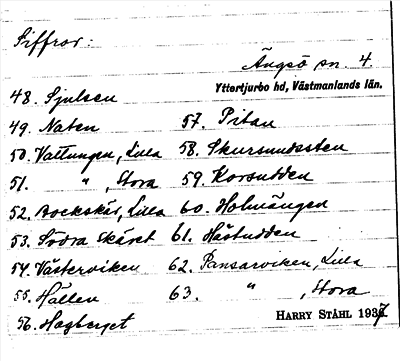 Siffror:
Ängsö sn. 4.
Yttertjurbo hd, Västmanlands län.
48. Sjulsen
49. Naten 57. Pitan
50. Vattungen, Lilla 58. Skursundssten
51. " , Stora 59. Korsudden
52. Bockskär, Lilla 60. Holmängen
53. Södra Skäret 61. Hästudden
54. Västerviken 62. Pansarviken, Lilla
55. Hällen 63. " , Stora
56. Hagberget HARRY STÅHL 1937